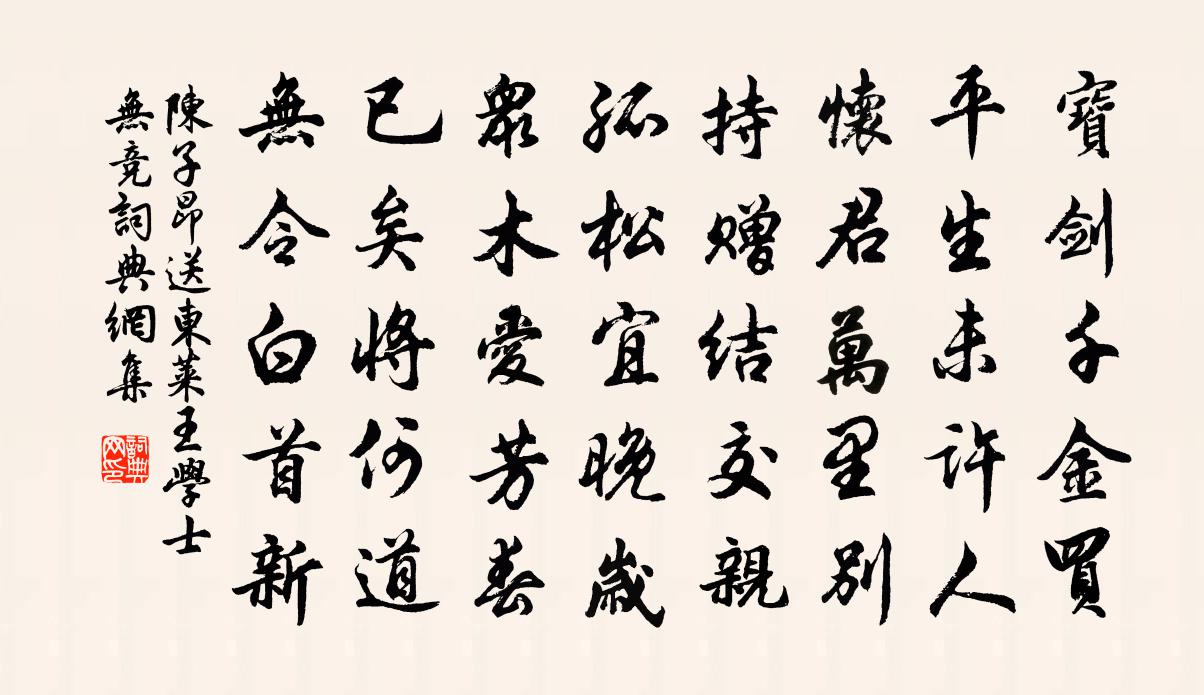 寶劍千金買
平生未許人
懷君萬里別
持贈結交親
孤松宜晚歲
衆木愛芳春
已矣將何道
無令白首新
陳子昂送東萊王學士
無競詞典網集
詞典网印